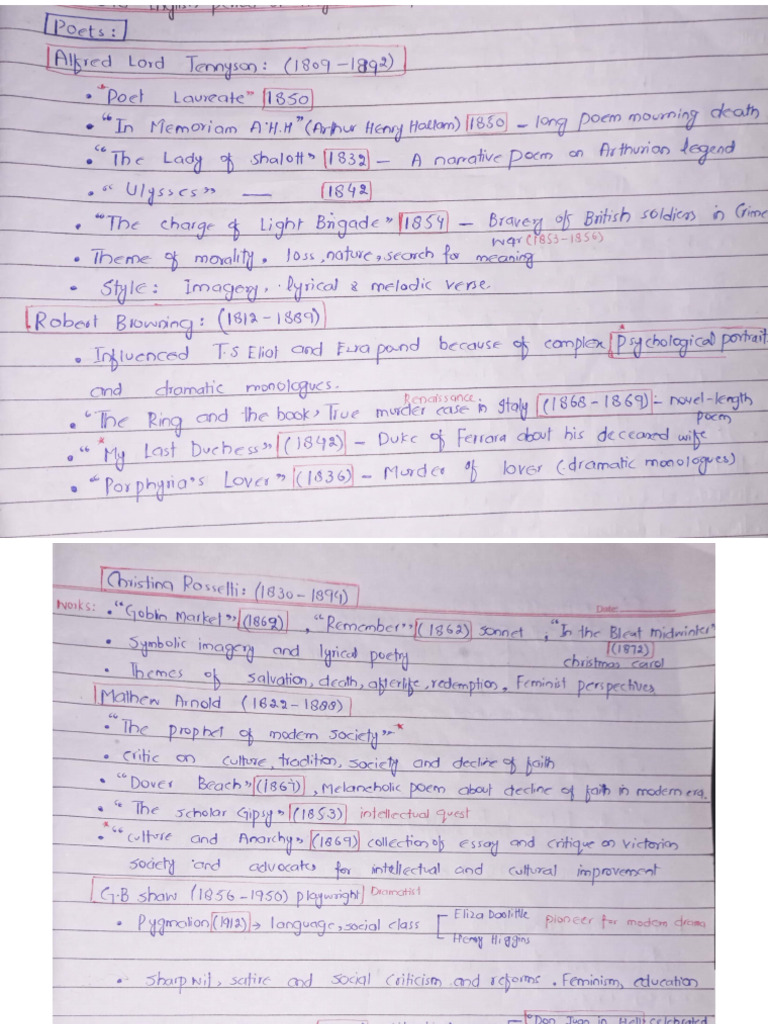 English period
Poets:
Alfred Lord Tennyson: (1809-1892)
• "Poet Laureate" 1850
• "In Memoriam A.H.H" (Arthur Henry Hallam) 1850 - long poem mourning death
• "The Lady of Shalott" 1832 - A narrative poem on Arthurian legend
• "Ulysses" — 1842
• "The charge of Light Brigade" 1854 - Bravery of British soldiers in Crime
war (1853-1856)
• Theme of morality, loss, nature, search for meaning
• Style: Imagery, lyrical & melodic verse.
Robert Browning: (1812-1889)
• Influenced T.S Eliot and Ezra pound because of complex Psychological portrait
and dramatic monologues.
• "The Ring and the book, True murder case in Renaissance Italy (1868-1869) - novel-length
poem
• "My Last Duchess" (1842) - Duke of Ferrara about his deceased wife
• "Porphyria's Lover" (1836) - Murder of lover (dramatic monologues)
Christina Rosselli: (1830-1894)
Date:
Works: • "Goblin Market" (1862), "Remember" (1862) sonnet, "In the Bleat midwinter"
(1872)
• Symbolic imagery and lyrical poetry christmas carol
• Themes of salvation, death, afterlife, redemption, Feminist perspectives
Mathew Arnold (1822-1888)
• "The prophet of modern society" *
• critic on culture, tradition, society and decline of faith
• "Dover Beach" (1867), Melancholic poem about decline of faith in modern era.
• "The scholar Gipsy" (1853) intellectual quest
* • "culture and Anarchy" (1869) collection of essay and critique on victorian
society and advocates for intellectual and cultural improvement
G.B Shaw (1856-1950) playwright Dramatist
• Pygmalion (1912) → language, social class Eliza Doolittle pioneer for modern drama
Henry Higgins
• sharp wit, satire and social criticism and reforms. Feminism, education
"Don Juan in Hell" celebrated